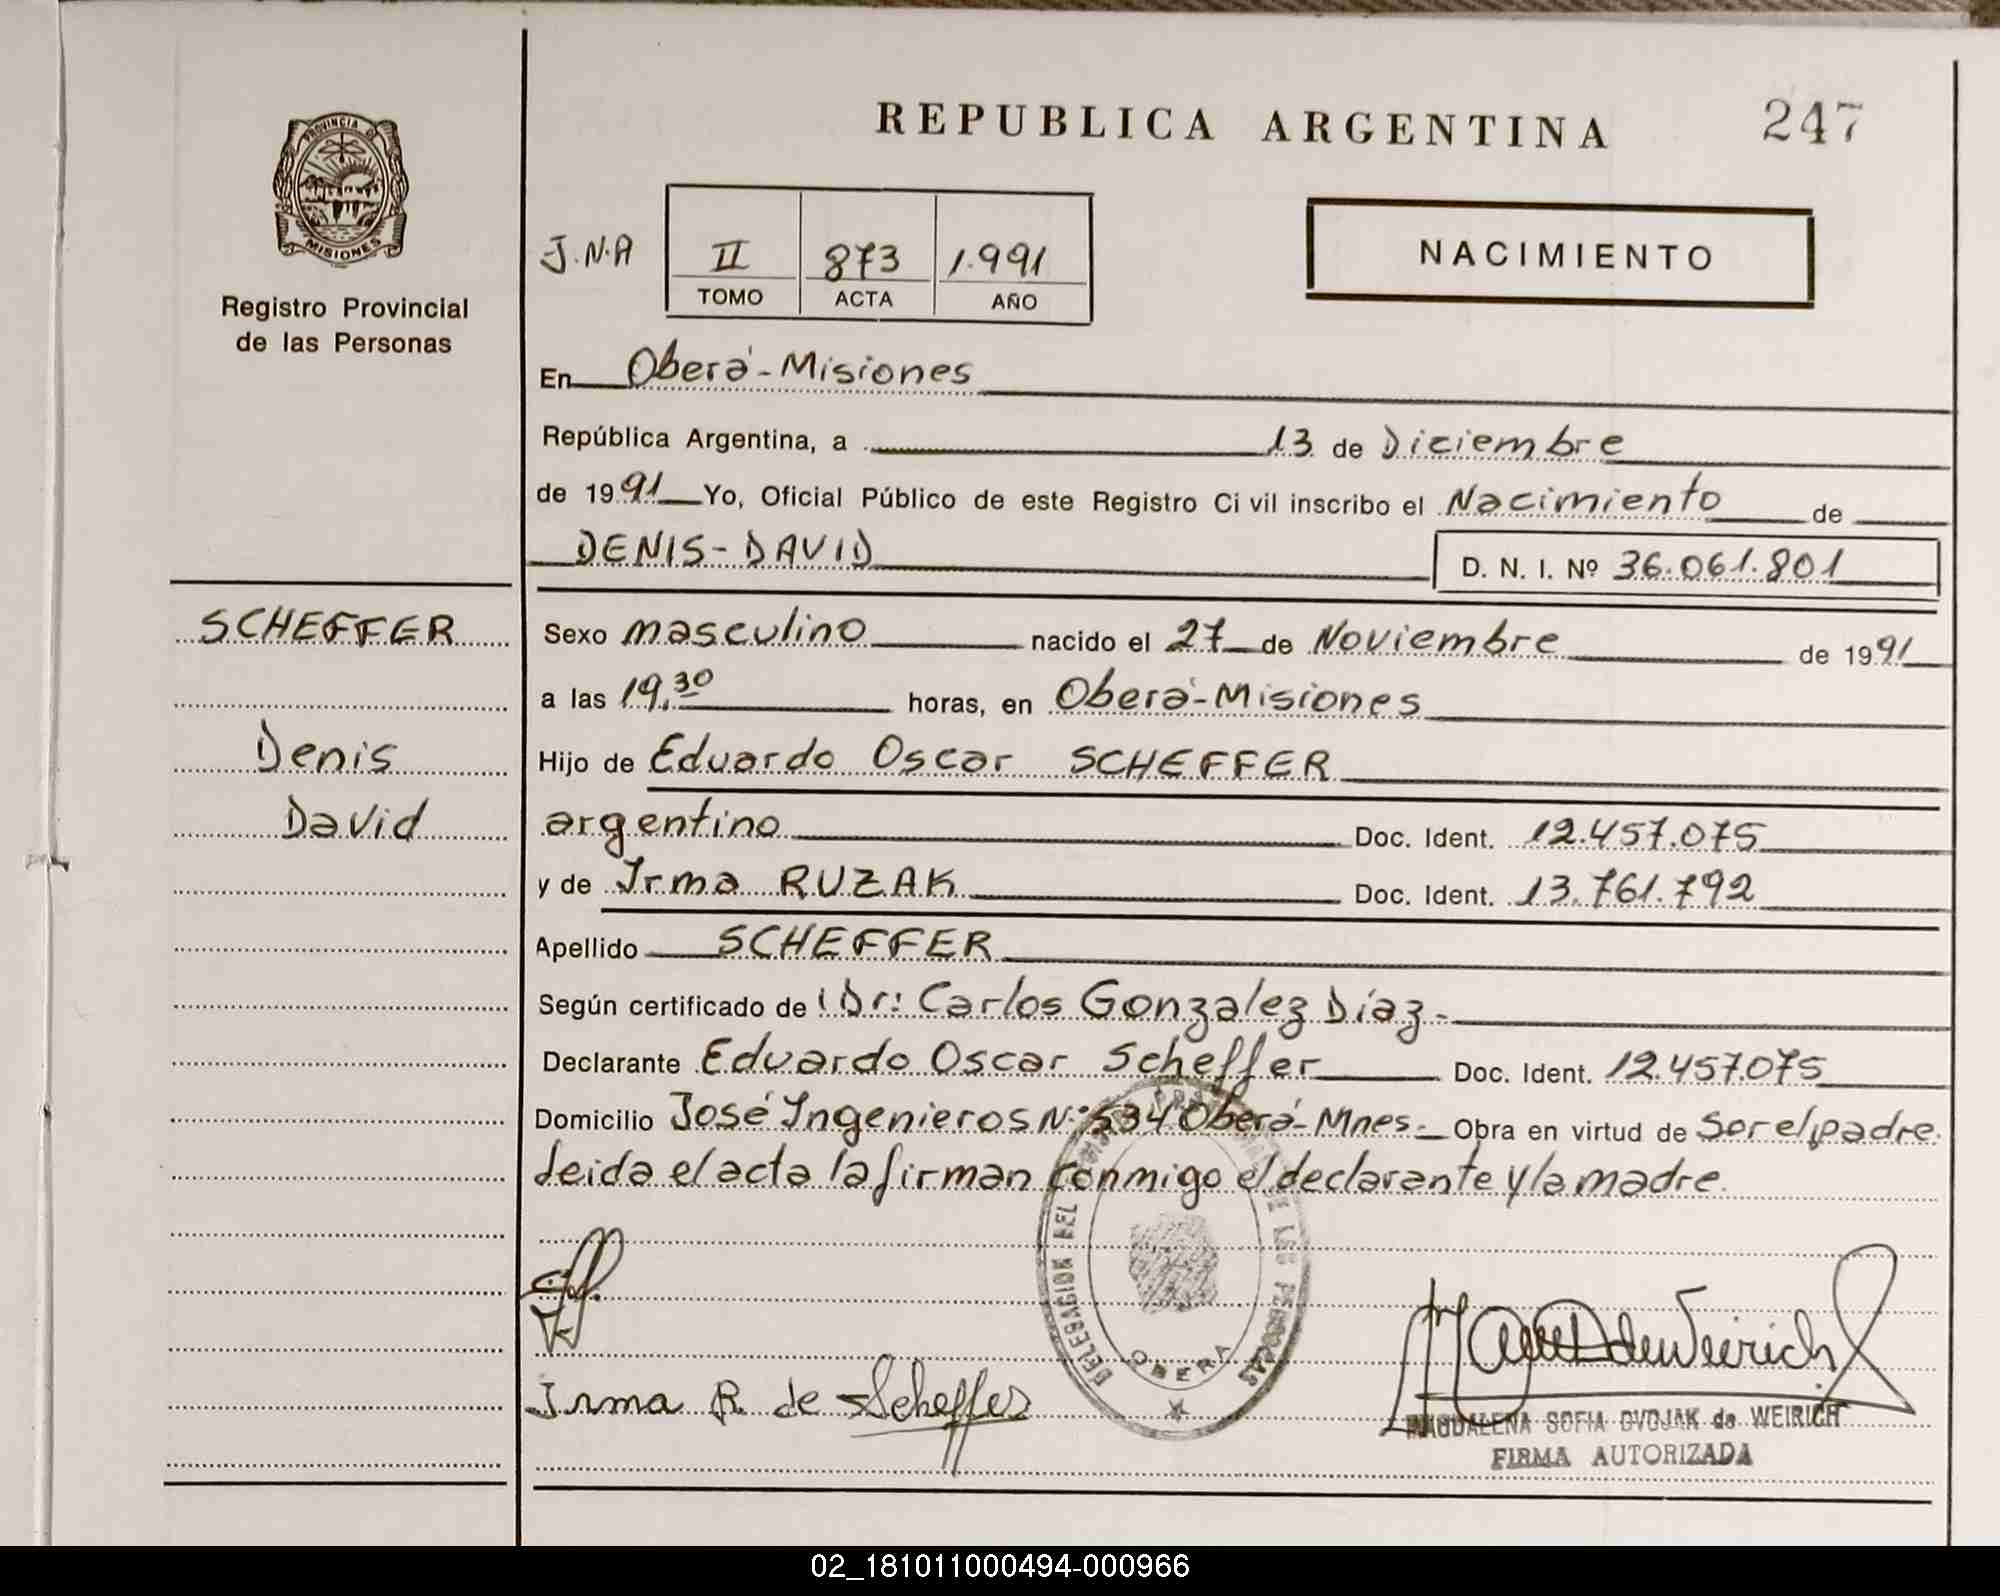 REPUBLICA ARGENTINA
247
PROVINCIA D
MISIONES
Registro Provincial
de las Personas
J.N.A
II
873
1.991
TOMO
ACTA
AÑO
NACIMIENTO
En Oberá-Misiones
República Argentina, a 13 de Diciembre
de 1991 Yo, Oficial Público de este Registro Ci vil inscribo el Nacimiento de
DENIS-DAVID
D. N. I. Nº 36.061.801
SCHEFFER
Denis
David
Sexo masculino nacido el 27 de Noviembre de 1991
a las 19.30 horas, en Oberá-Misiones
Hijo de Eduardo Oscar SCHEFFER
argentino Doc. Ident. 12.457.075
y de Irma RUZAK Doc. Ident. 13.761.792
Apellido SCHEFFER
Según certificado de Dr: Carlos Gonzalez Díaz.-
Declarante Eduardo Oscar Scheffer Doc. Ident. 12.457.075
Domicilio José Ingenieros Nº 534 Oberá-Mnes.- Obra en virtud de ser el padre.
Leida el acta la firman conmigo el declarante y la madre.
DELEGACION DEL
DE LAS PERSONAS
OBERA
Irma R. de Scheffer
de Weirich
MAGDALENA SOFIA DVOJAK de WEIRICH
FIRMA AUTORIZADA
02_181011000494-000966